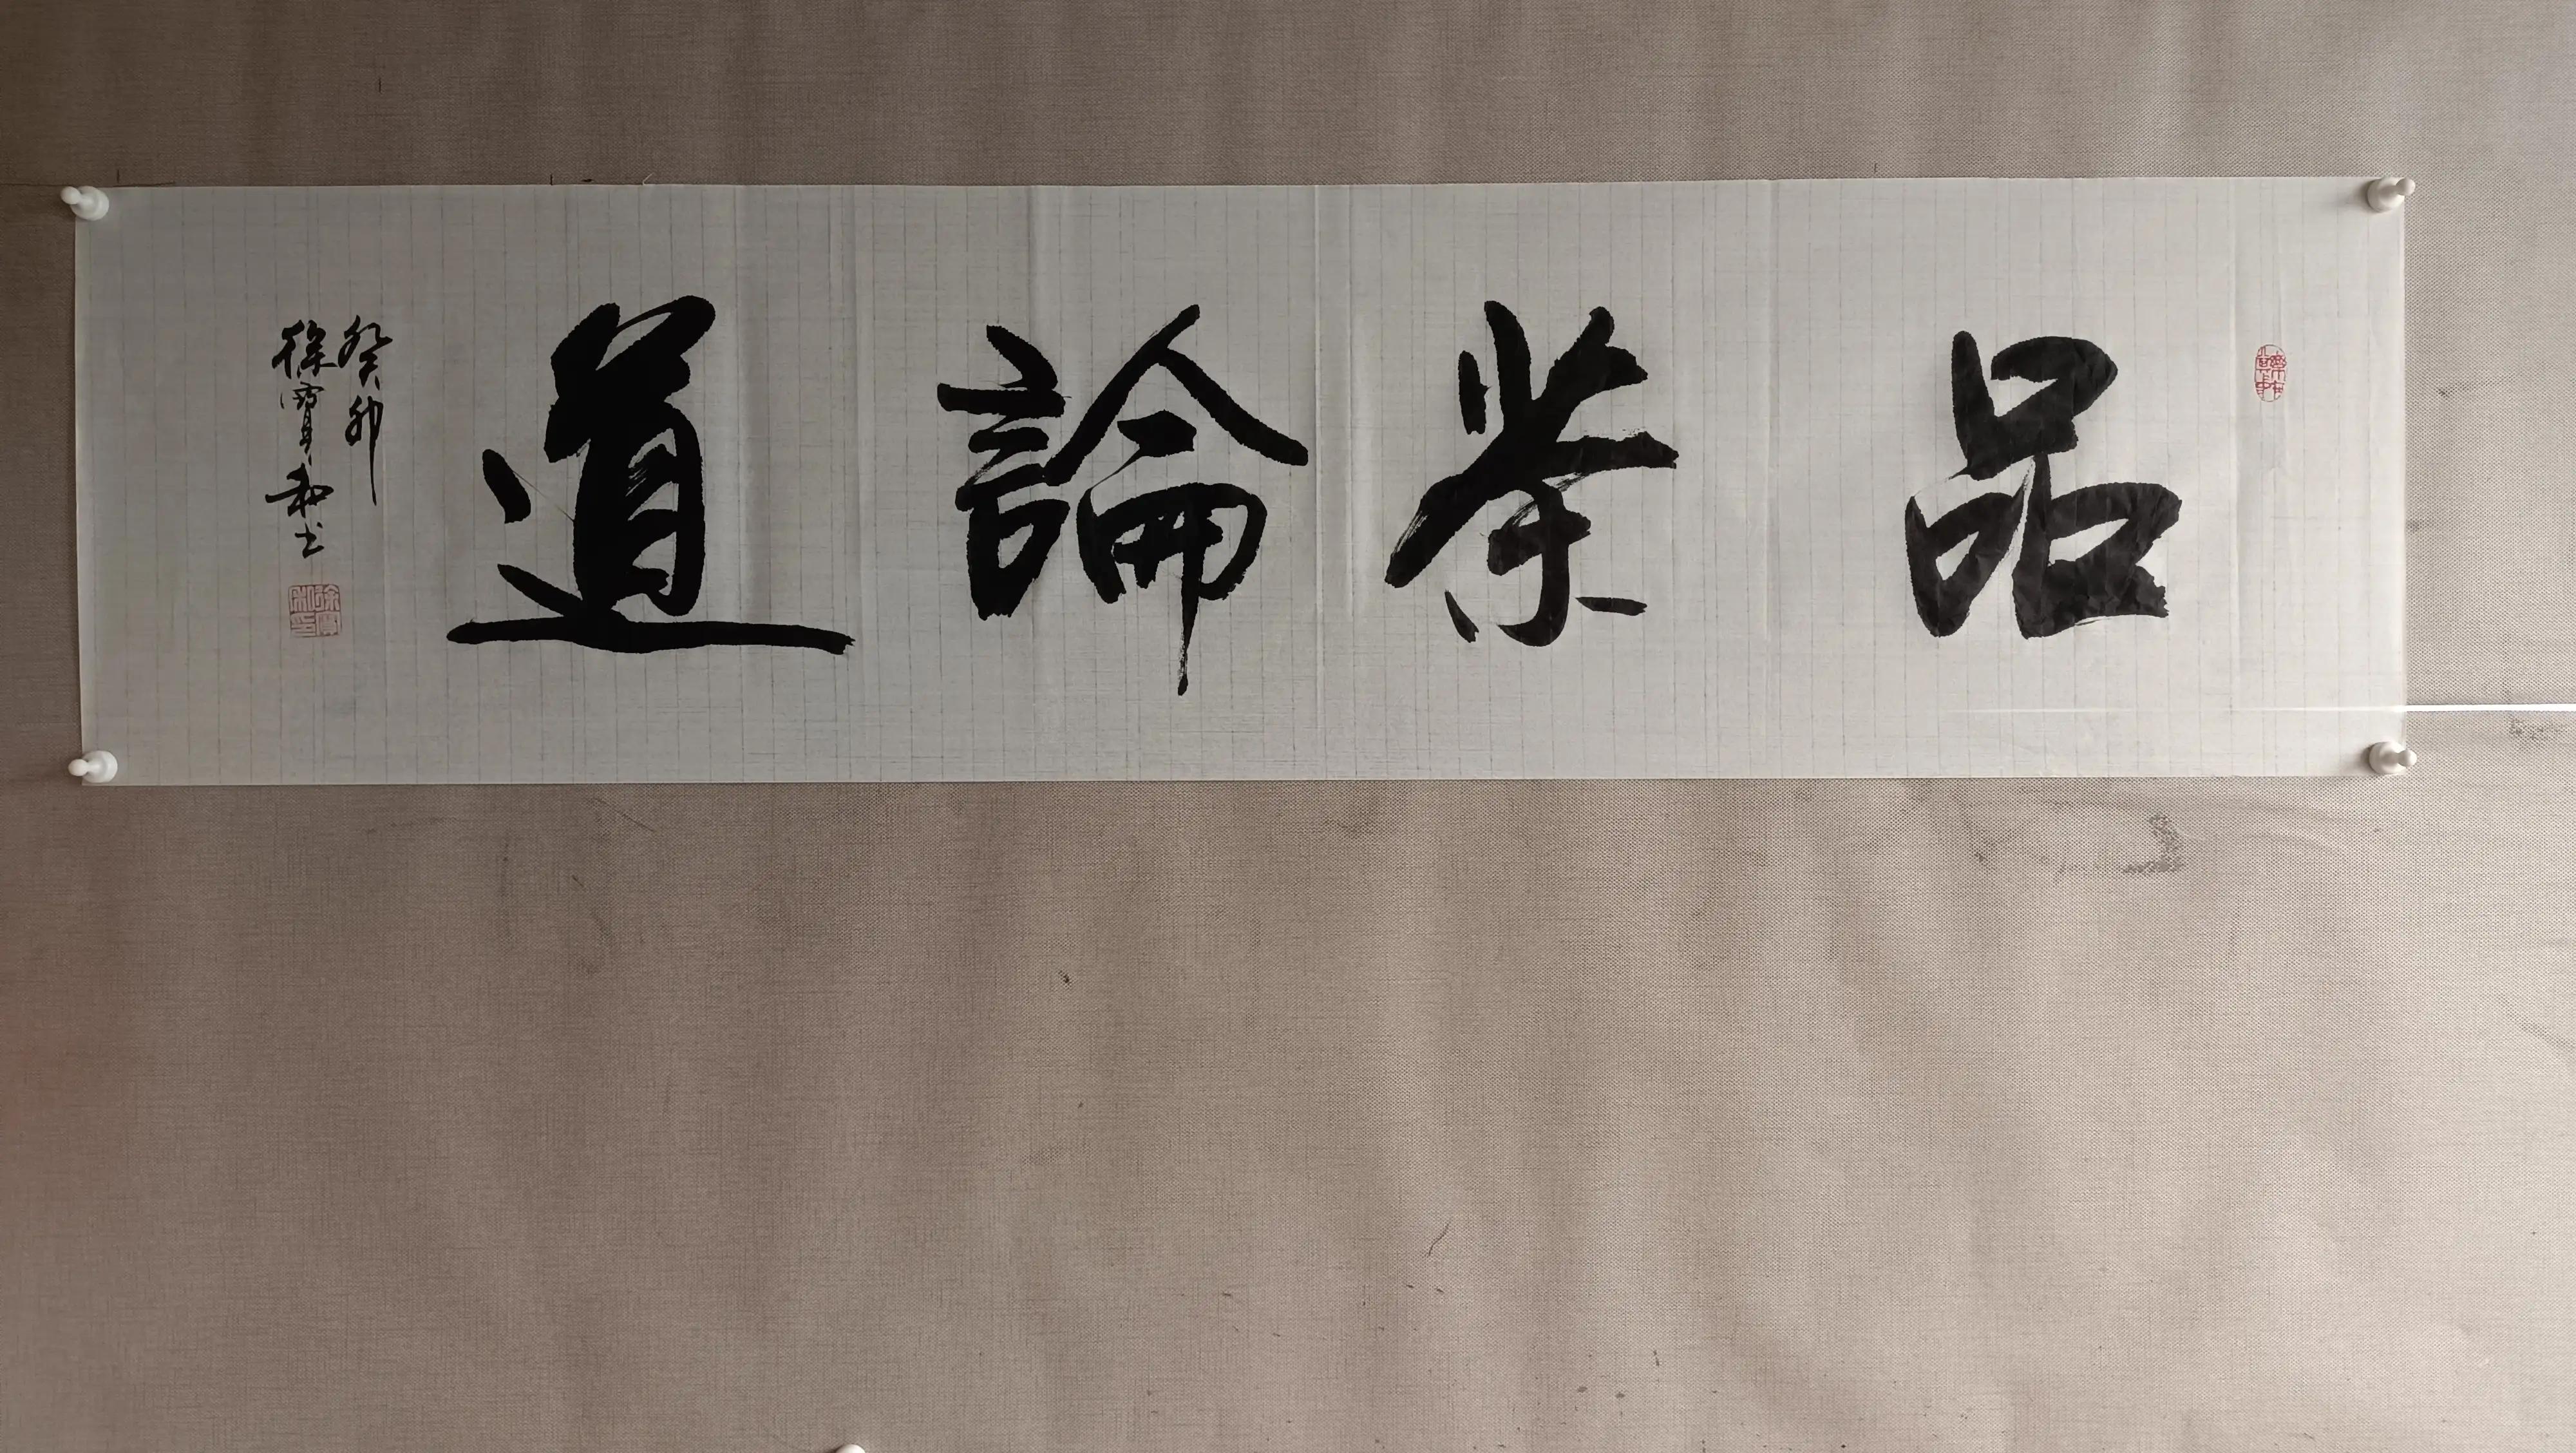 品茶論道
癸卯
徐寶和书